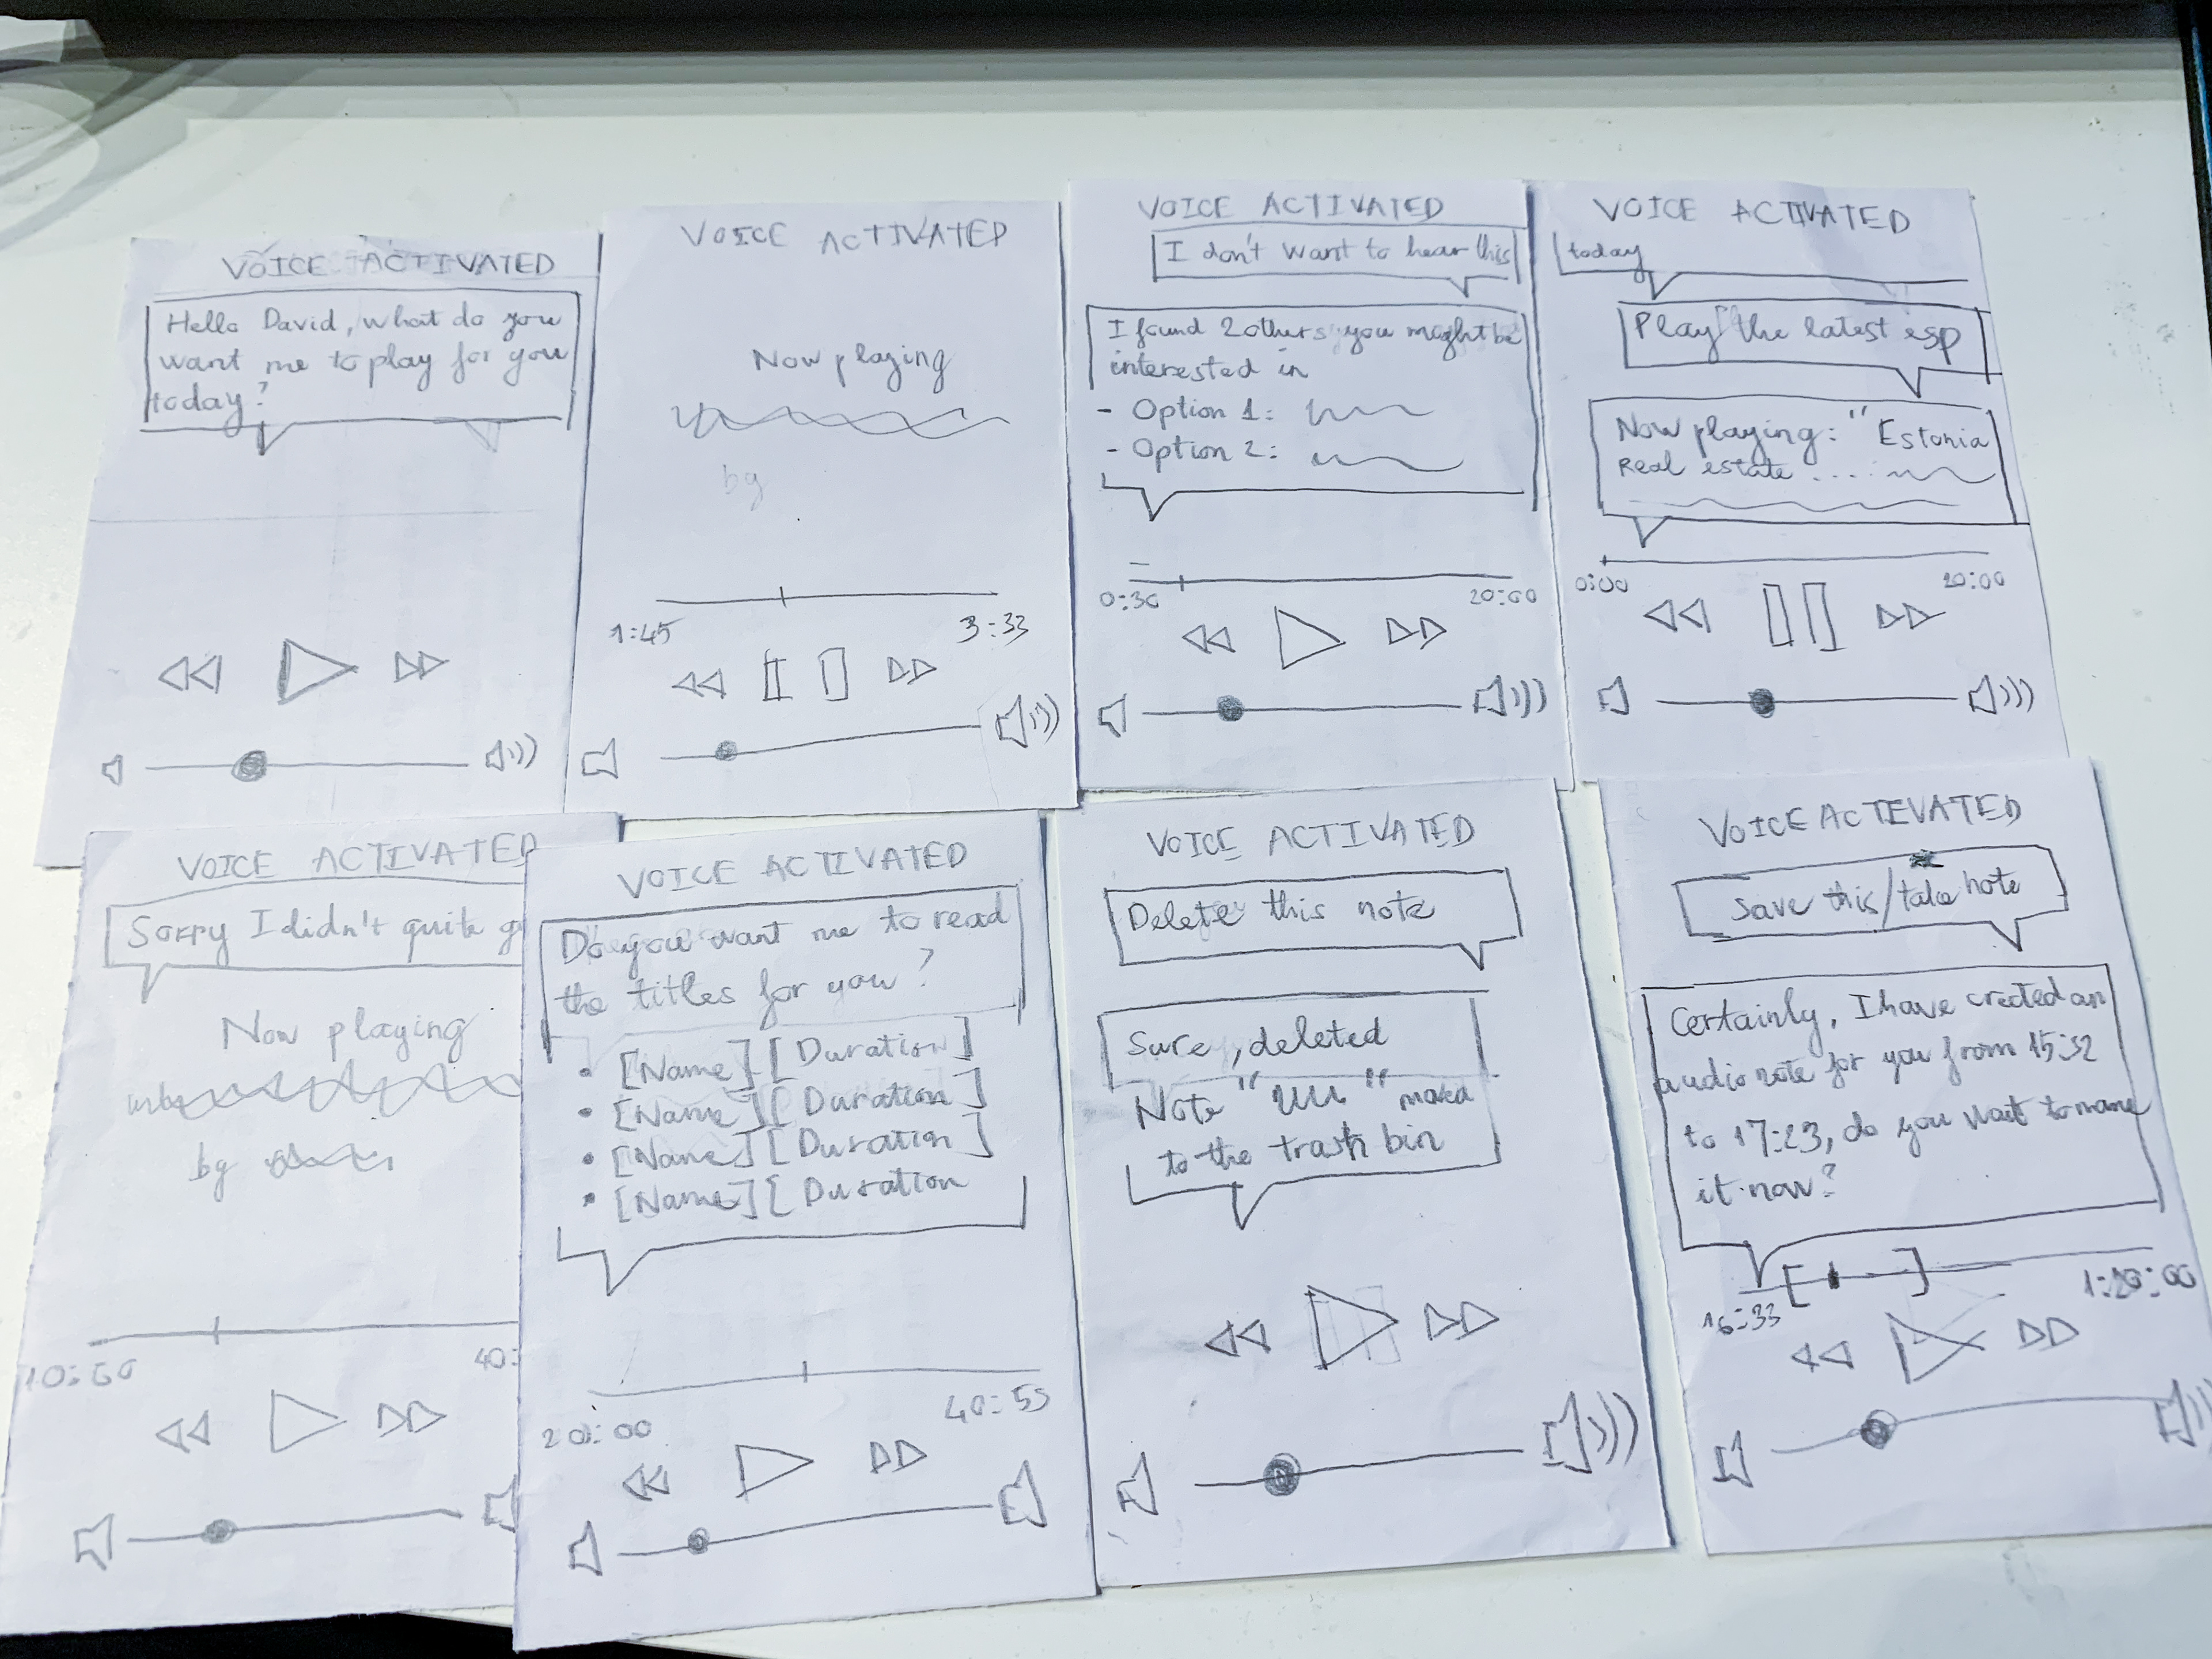 VOICE ACTIVATED
Hello David, what do you
want me to play for you
today?
VOICE ACTIVATED
Now playing
by
1:45
3:33
VOICE ACTIVATED
I don't want to hear this
I found 2 others you might be
interested in
- Option 1:
- Option 2:
0:30
20:00
VOICE ACTIVATED
today
Play the latest esp
Now playing: "Estonia
Real estate ....
0:00
20:00
VOICE ACTIVATED
Sorry I didn't quite g
Now playing
by
10:50
40:
VOICE ACTIVATED
Do you want me to read
the titles for you?
• [Name] [Duration]
• [Name] [Duration]
• [Name] [Duration]
• [Name] [Duration
20:00
40:53
VOICE ACTIVATED
Delete this note
Sure, deleted
Note " " moved
to the trash bin
VOICE ACTIVATED
Save this/take note
Certainly, I have created an
audio note for you from 15:32
to 17:23, do you want to name
it now?
16:33
1:20:00